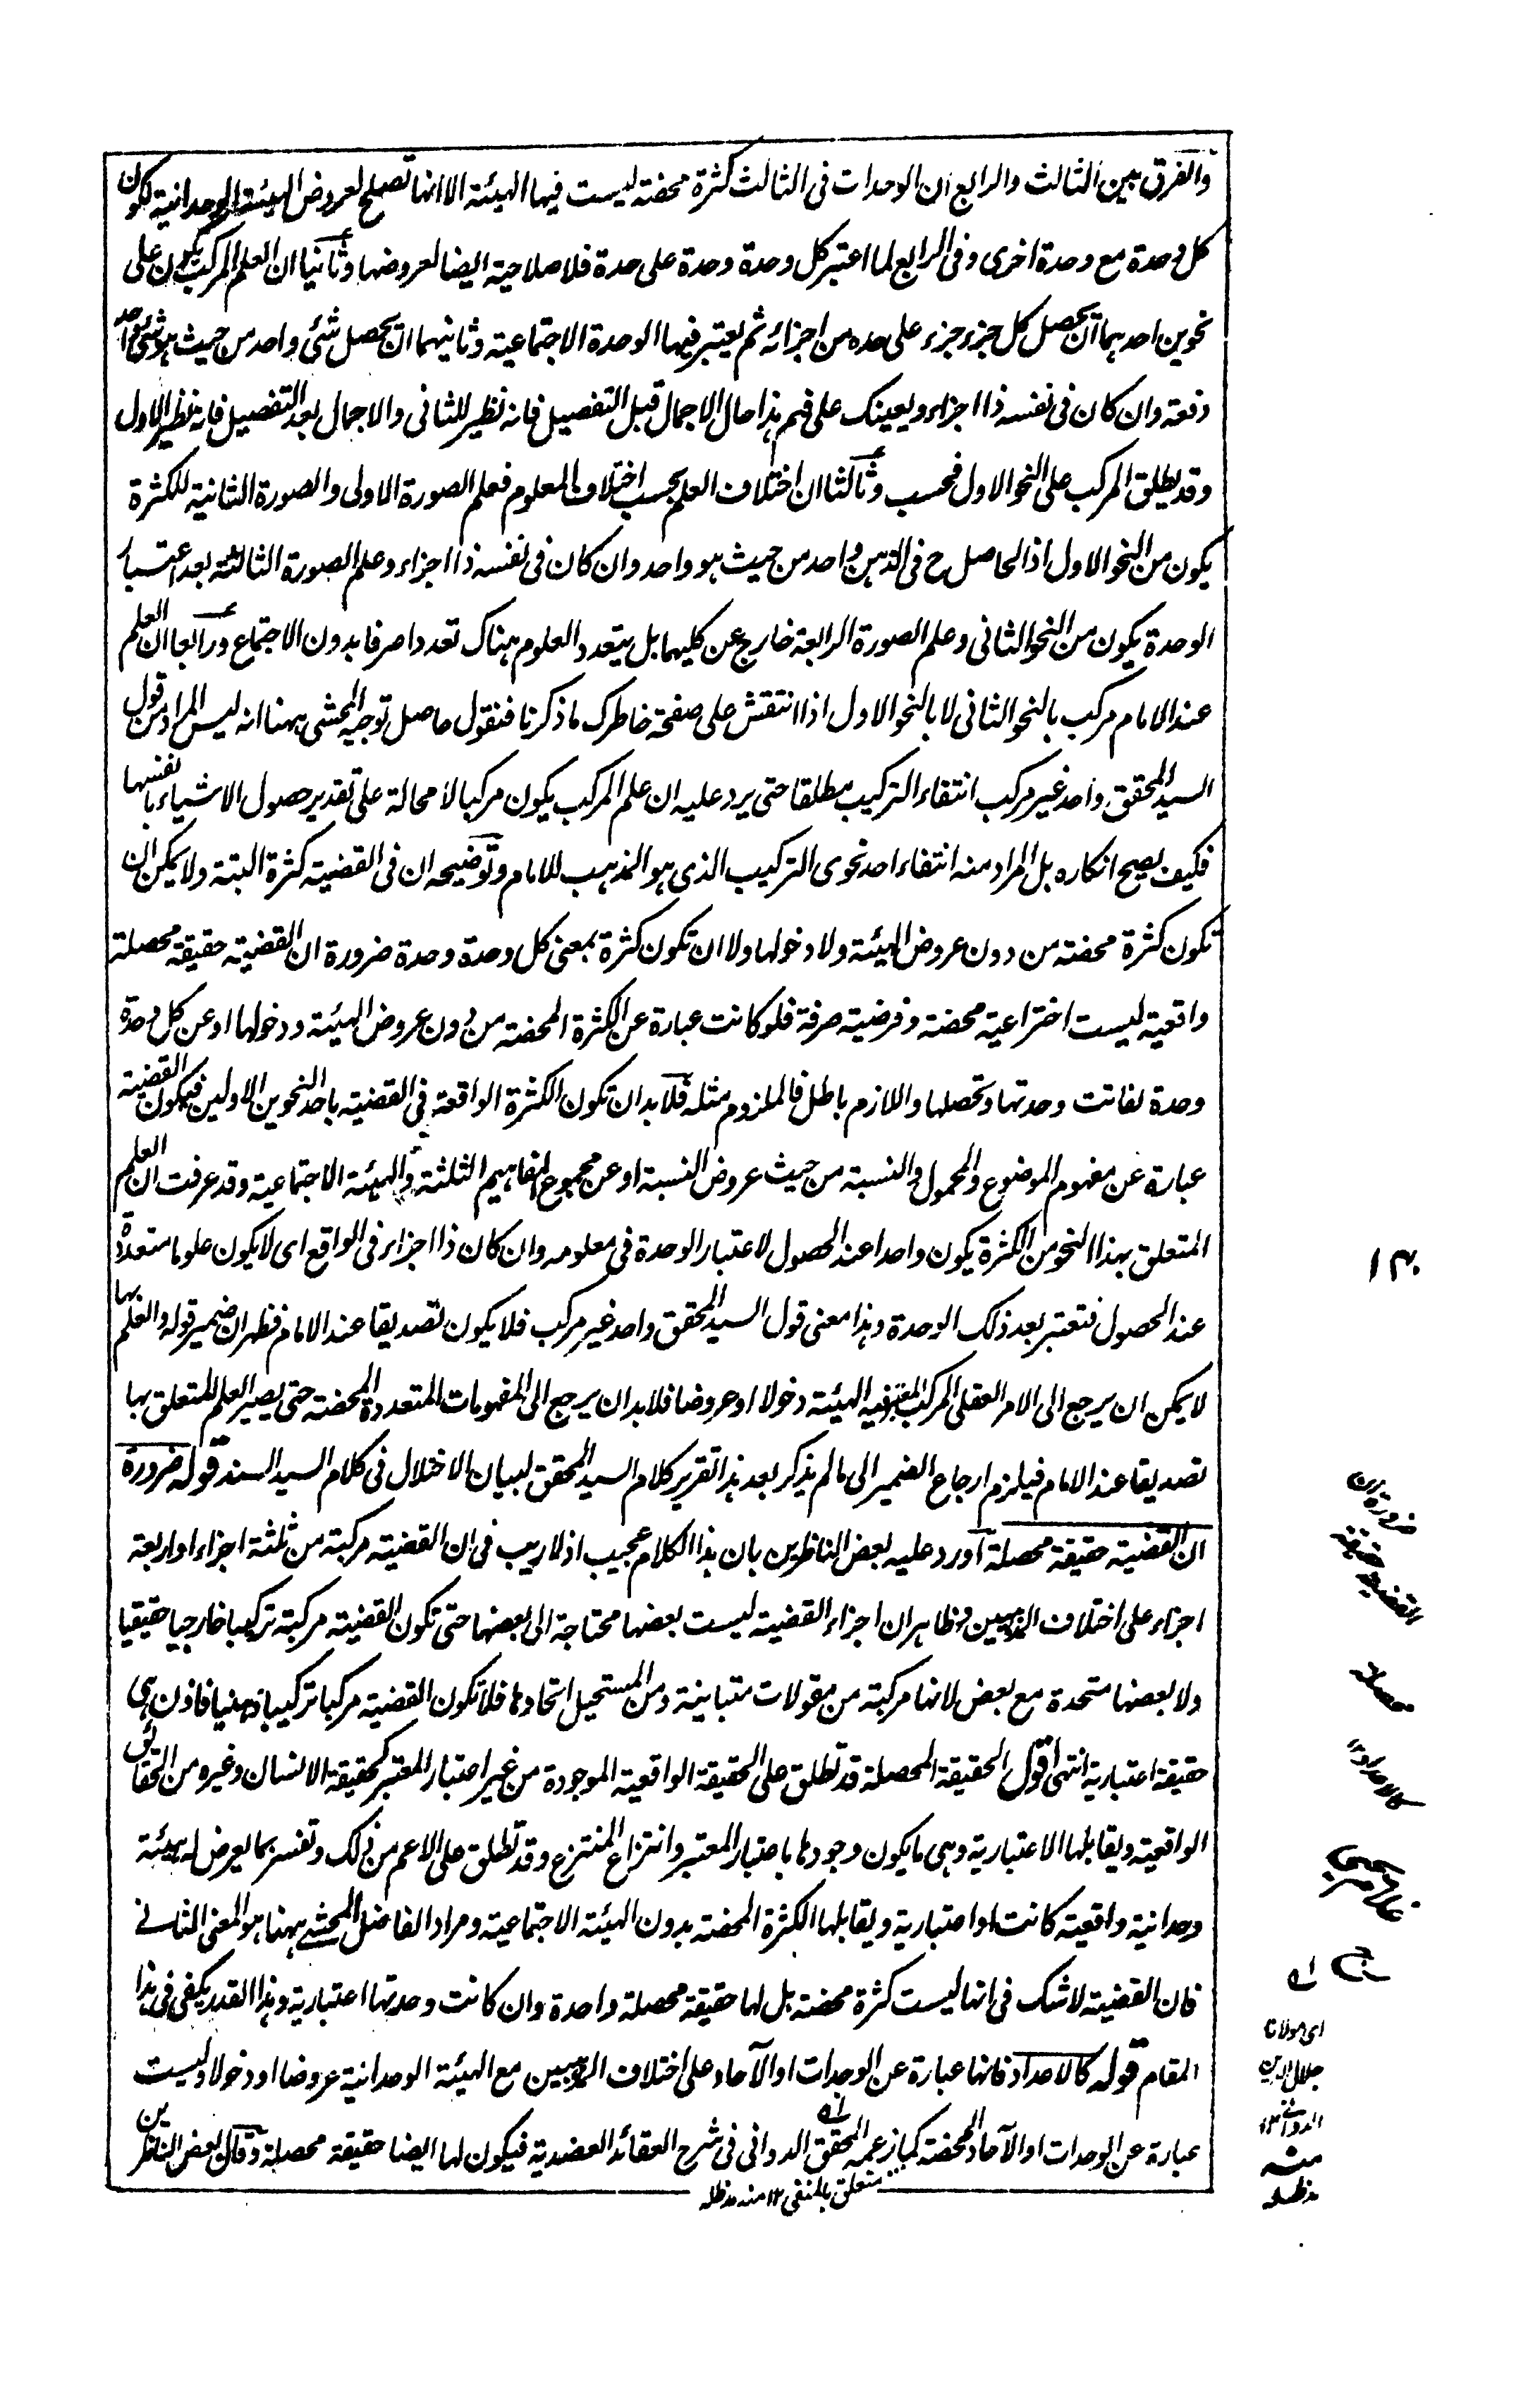 والفرق بين الثالث والرابع ان الوحدات فى الثالث كثرة محضة ليست فيها الهيئة الا انها تصلح لعروض الهيئة الوحدانية لكون
كل وحدة مع وحدة اخرى وفى الرابع لما اعتبر كل وحدة وحدة على حدة فلا صلاحية ايضا لعروضها وثانيا ان العلم المركب يكون على
نحوين احدهما ان يحصل كل جزء جزء على حده من اجزائه ثم يعتبر فيها الوحدة الاجتماعية وثانيهما ان يحصل شئ واحد من حيث هو شئ واحد
دفعة وان كان فى نفسه ذا اجزاء ويعينك على فهم هذا حال الاجمال قبل التفصيل فانه نظير للثانى والاجمال بعد التفصيل فانه نظير الاول
وقد يطلق المركب على النحو الاول فحسب وثالثا ان اختلاف العلم بحسب اختلاف المعلوم فعلم الصورة الاولى والصورة الثانية للكثرة
يكون من النحو الاول اذ الحاصل ح فى الذهن واحد من حيث هو واحد وان كان فى نفسه ذا اجزاء وعلم الصورة الثالثة بعد اعتبار
الوحدة يكون من النحو الثانى وعلم الصورة الرابعة خارج عن كليهما بل يتعدد العلوم هناك تعددا صرفا بدون الاجتماع ورابعا ان العلم
عند الامام مركب بالنحو الثانى لا بالنحو الاول اذا انتقش على صفحة خاطرك ما ذكرنا فنقول حاصل توجيه المحشى ههنا انه ليس المراد من قول
السيد المحقق واحد غير مركب انتفاء التركيب مطلقا حتى يرد عليه ان علم المركب يكون مركبا لا محالة على تقدير حصول الاشياء بانفسها
فكيف يصح انكاره بل المراد منه انتفاء احد نحوى التركيب الذى هو المذهب للامام وتوضيحه ان فى القضية كثرة البتة ولا يمكن ان
تكون كثرة محضة من دون عروض الهيئة ولا دخولها ولا ان تكون كثرة بمعنى كل وحدة وحدة ضرورة ان القضية حقيقة محصلة
واقعية ليست اختراعية محضة وفرضية صرفة فلو كانت عبارة عن الكثرة المحضة من دون عروض الهيئة ودخولها او عن كل وحدة
وحدة لفاتت وحدتها وتحصلها واللازم باطل فالملزوم مثله فلا بد ان تكون الكثرة الواقعة فى القضية باحد النحوين الاولين فيكون القضية
عبارة عن مفهوم الموضوع والمحمول والنسبة من حيث عروض النسبة او عن مجموع المفاهيم الثلثة والهيئة الاجتماعية وقد عرفت ان العلم
المتعلق بهذا النحو من الكثرة يكون واحدا عند الحصول لاعتبار الوحدة فى معلومه وان كان ذا اجزاء فى الواقع اى لا يكون علوما متعددة
عند الحصول فتعتبر بعد ذلك الوحدة وهذا معنى قول السيد المحقق واحد غير مركب فلا يكون تصديقا عند الامام فظهر ان ضمير قوله والعلم بها
لا يمكن ان يرجع الى الامر العقلى المركب المعتبر فيه الهيئة دخولا او عروضا فلا بد ان يرجع الى المفهومات المتعددة المحضة حتى يصير العلم المتعلق بها
تصديقا عند الامام فيلزم ارجاع الضمير الى ما لم يذكر بعد هذا تقرير كلام السيد المحقق لبيان الاختلال فى كلام السيد السند قوله ضرورة
ان القضية حقيقة محصلة اورد عليه بعض الناظرين بان هذا الكلام عجيب اذ لا ريب فى ان القضية مركبة من ثلثة اجزاء او اربعة
اجزاء على اختلاف المذهبين وظاهر ان اجزاء القضية ليست بعضها محتاجة الى بعضها حتى تكون القضية مركبة تركيبا خارجيا حقيقيا
ولا بعضها متحدة مع بعض لانها مركبة من مقولات متباينة ومن المستحيل اتحادها فلا تكون القضية مركبا تركيبا ذهنيا فاذن هى
حقيقة اعتبارية انتهى اقول الحقيقة المحصلة قد تطلق على الحقيقة الواقعية الموجودة من غير اعتبار المعتبر كحقيقة الانسان وغيره من الحقائق
الواقعية ويقابلها الاعتبارية وهى ما يكون وجودها باعتبار المعتبر وانتزاع المنتزع وقد تطلق على الاعم من ذلك وتفسر بما يعرض له هيئة
وحدانية واقعية كانت او اعتبارية ويقابلها الكثرة المحضة بدون الهيئة الاجتماعية ومراد الفاضل المحشے ههنا هو المعنى الثانے
فان القضية لا شك فى انها ليست كثرة محضة بل لها حقيقة محصلة واحدة وان كانت وحدتها اعتبارية وهذا القدر يكفى فى هذا
المقام قوله كالاعداد فانها عبارة عن الوحدات او الآحاد على اختلاف المذهبين مع الهيئة الوحدانية عروضا او دخولا وليست
عبارة عن الوحدات او الآحاد المحضة كما زعمه المحقق الدوانى فى شرح العقائد العضدية فيكون لها ايضا حقيقة محصلة وقال بعض الناظرين
متعلق بالمنفى ١٢ منه مدظله
ضرورة ان
القضية حقيقة
محصلة
كالاعداد ١٢
اى مولانا
جلال الدين
الدوانے ١٢
منه
مدظله